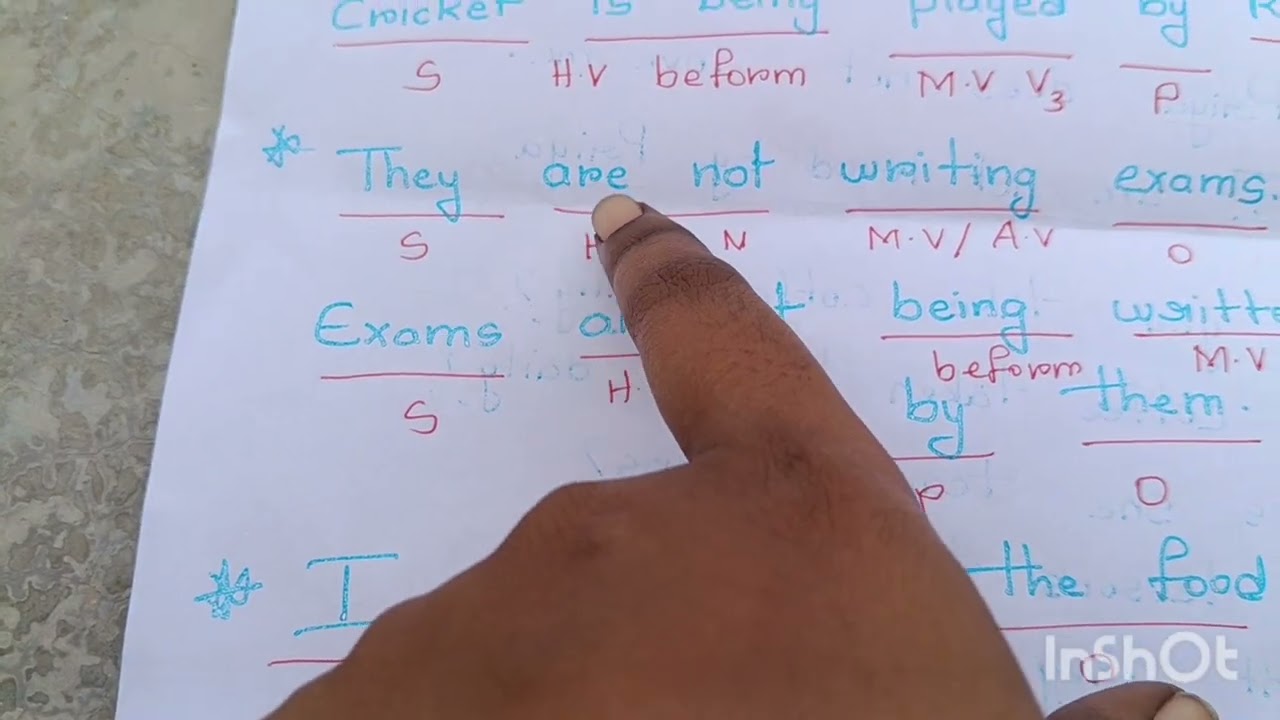 Cricket is being played by
S H.V beform M.V V3 P
* They are not writing exams.
S H N M.V/ A.V O
Exams being
S H. beform M.V
by them.
P O
* I the food
O
InShOt